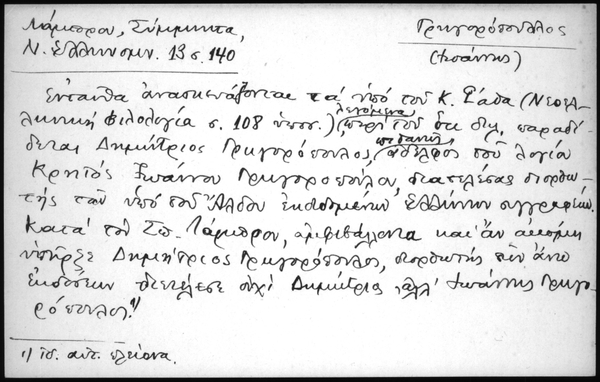 Λάμπρου, Σύμμικτα,
Ν. Ἑλληνομν. 13 σ. 140
Γρηγορόπουλος
(Ἰωάννης)
Ἐνταῦθα ἀνασκευάζονται τὰ ὑπὸ τοῦ Κ. Σάθα (Νεοελ-
ληνικὴ Φιλολογία σ. 108 ὑποσ.) λεγόμενα περὶ τοῦ ὅτι δῆθ. παραδί-
δεται Δημήτριος Γρηγορόπουλος, πιθανῶς ἀδελφὸς τοῦ λογίου
Κρητὸς Ἰωάννου Γρηγοροπούλου, διατελέσας διορθω-
τὴς τῶν ὑπὸ τοῦ Ἄλδου ἐκδιδομένων Ἑλλήνων συγγραφέων.
Κατὰ τὸν Σπ. Λάμπρον, ἀμφιβάλλοντα καὶ ἂν ἀκόμη
ὑπῆρξε Δημήτριος Γρηγορόπουλος, διορθωτὴς τῶν ἄνω
ἐκδόσεων διετέλεσε οὐχὶ Δημήτριος ἀλλ' Ἰωάννης Γρηγο-
ρόπουλος.¹⁾
1) Ἰδ. αὐτ. πλείονα.